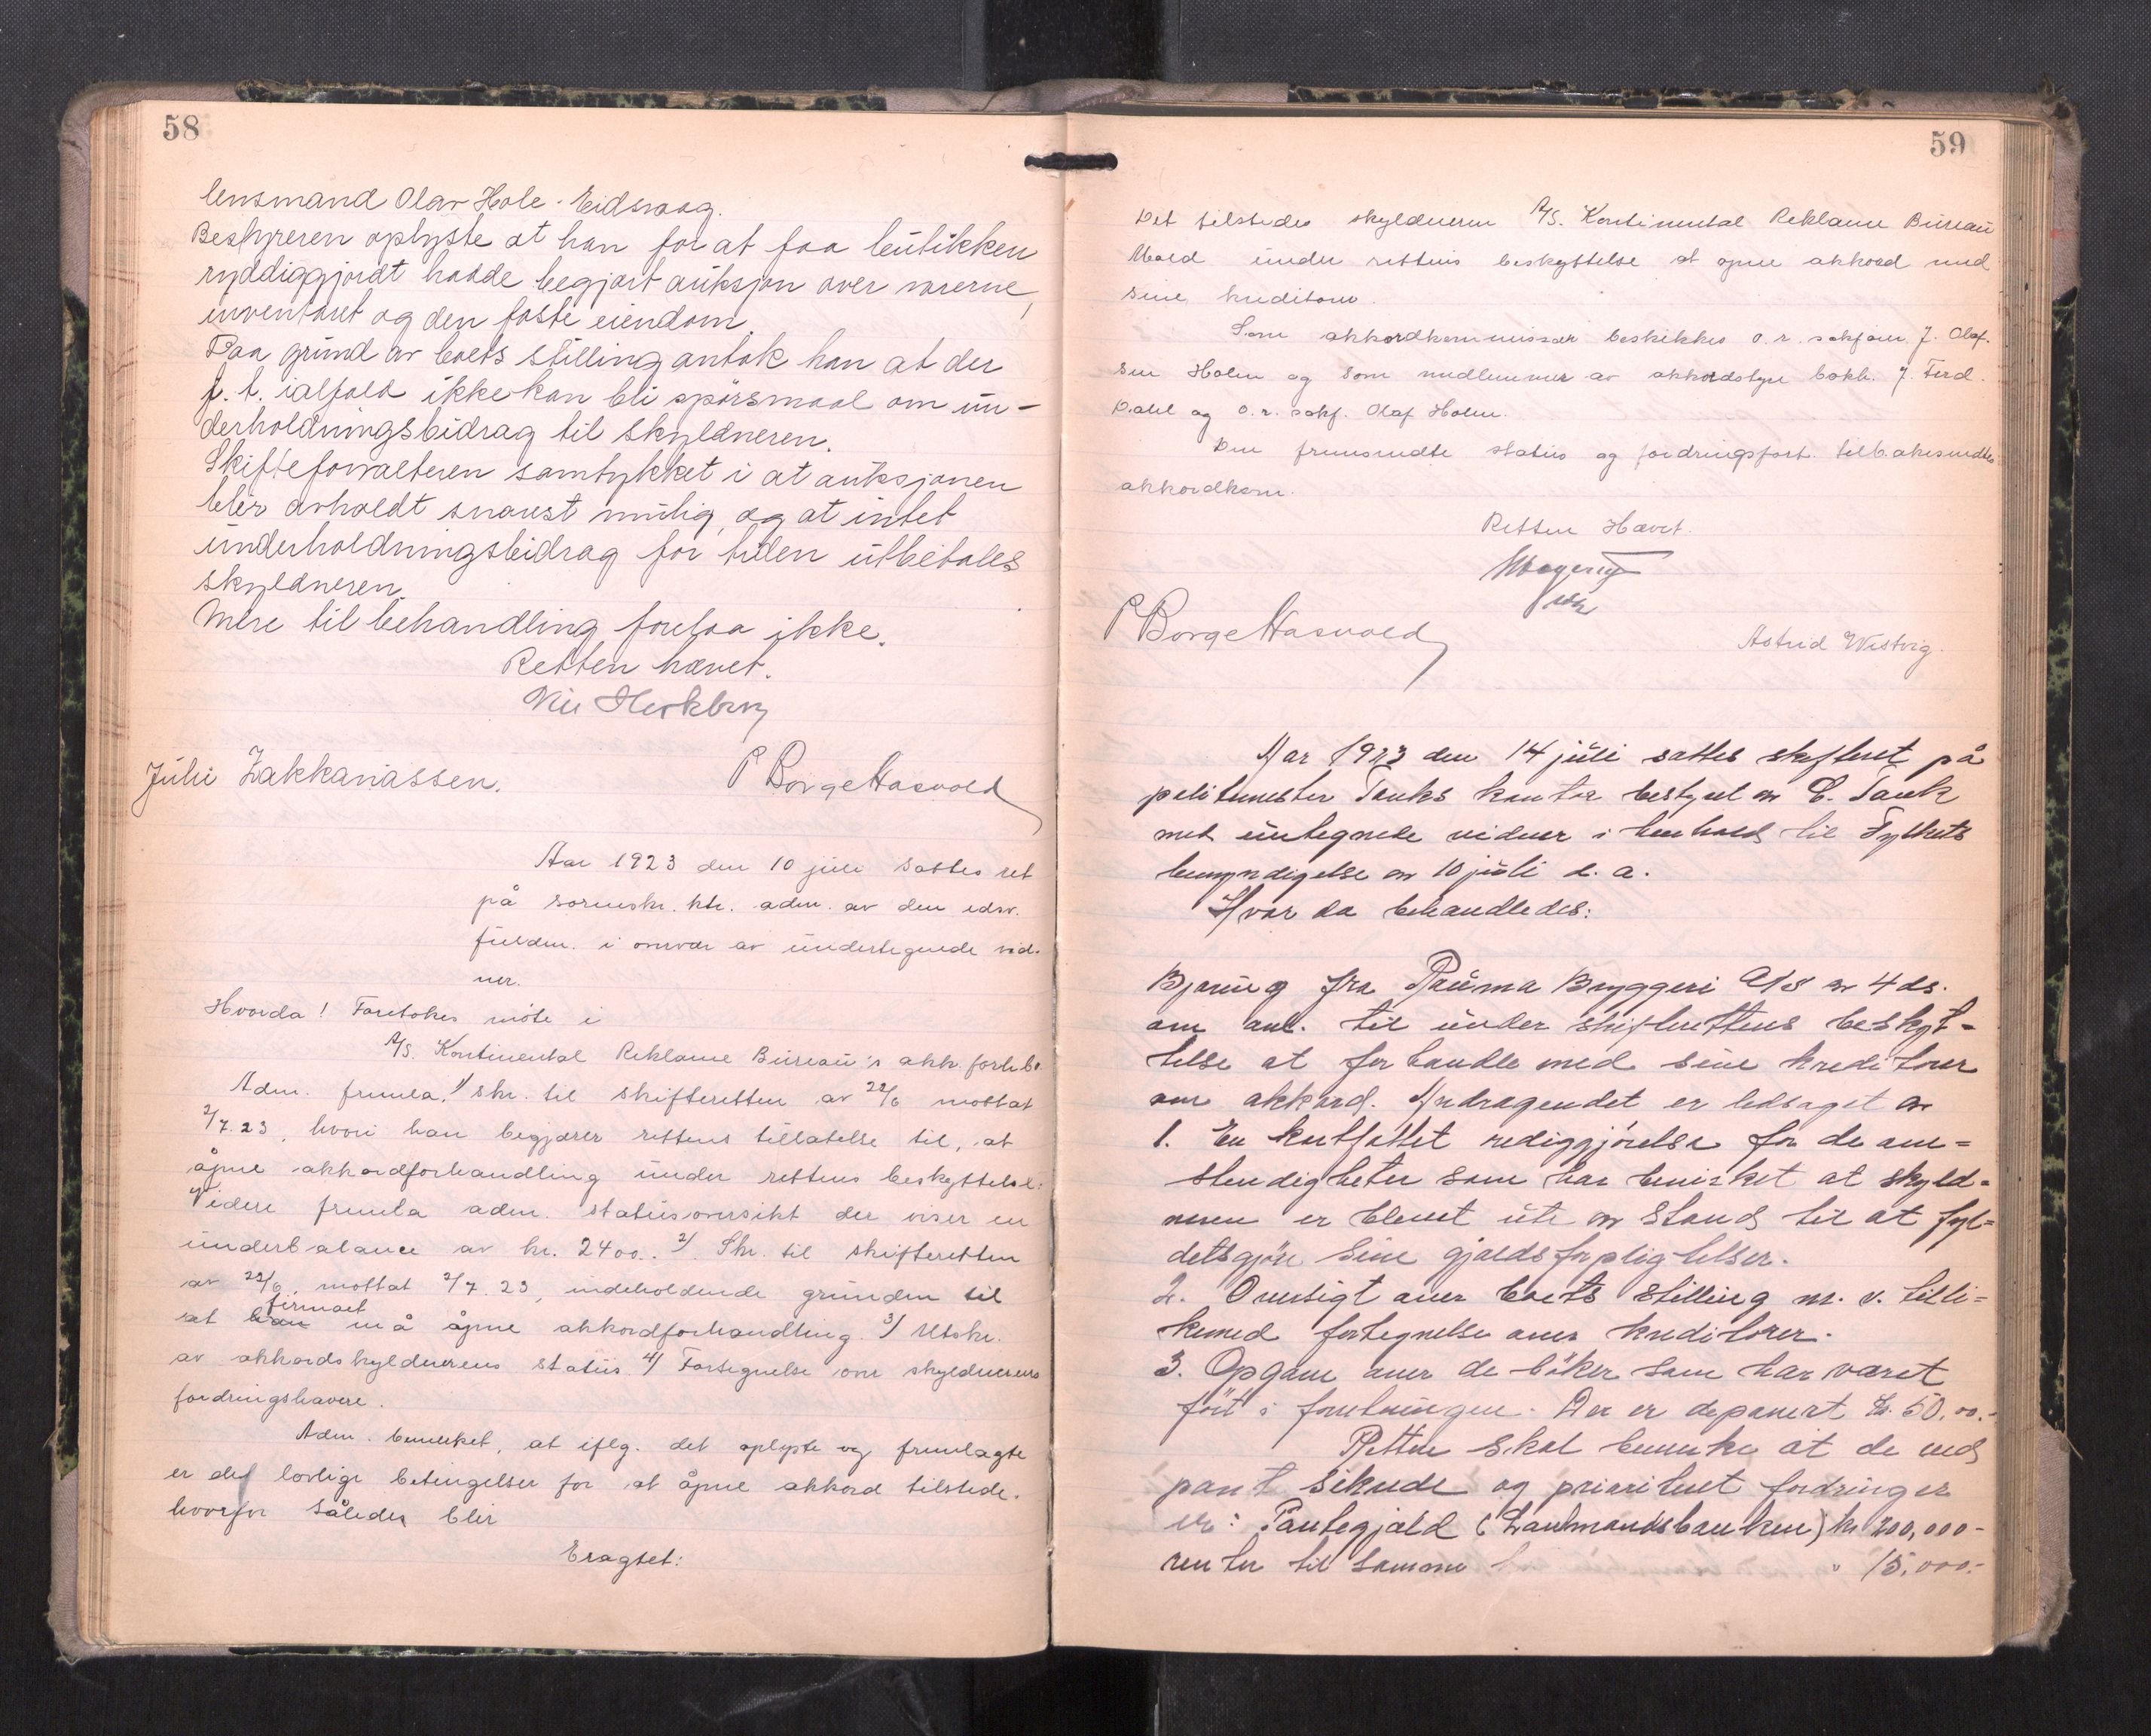 58
lensmand Olav Hole - Eidsvaag.
Bestyreren oplyste at han for at faa butikken
ryddiggjordt hadde begjært auksjon over varerne,
inventaret og den faste eiendom.
Paa grund av boets stilling antok han at der
f. t. ialfald ikke kan bli spørsmaal om un-
derholdningsbidrag til skyldneren.
Skifteforvalteren samtykket i at auksjonen
blir avholdt snarest mulig, og at intet
underholdningsbidrag for tiden utbetales
skyldneren.
Mere til behandling forelaa ikke.
Retten hævet.
Juli Zakkariassen. P Borge Hasvold
Aar 1923 den 10 juli sattes ret
på sorenskr. ktr. adm. av den edsv.
fuldm. i overvær av undertegnede vid-
ner.
Hvorda! Foretokes møte i
A/S. Kontinental Reklame Bureau's akk. forh.bo
Adm. fremla: 1/ skr. til skifteretten av 22/6 mottat
2/7.23, hvori han begjærer rettens tillatelse til, at
åpne akkordforhandling under rettens beskyttelse.
Videre fremla adm. statusoversikt der viser en
underbalance av kr. 2400.. 2/. Skr. til skifteretten
av 22/6, mottat 2/7.23, indeholdende grunden til
firmaet
at han må åpne akkordforhandling. 3/ Utskr.
av akkordskyldnerens status. 4/ Fortegnelse over skyldnerens
fordringshavere.
Adm. bemerket, at iflg. det oplyste og fremlagte
er de lovlige betingelser for at åpne akkord tilstede.
hvorfor således blir
Eragtet:
59
Det tilstedes skyldneren A/S. Kontinental Reklame Bureau
Molde under rettens beskyttelse at åpne akkord med
sine kreditorer.
Som akkordkommissær beskikkes o. r. sakfører J. Olaf-
sen Holm og som medlemmer av akkordstyre bokh. J. Ferd.
Dahl og o. r. sakf. Olaf Holm.
Den fremsendte status og fordringsfort. tilbakesendtes
akkordkom.
Retten Hævet.
P Borge Hasvold Astrid Westvig.
Aar 1923 den 14 juli sattes skifteret på
politimester Tanks kontor bestyret av C. Tank
med untegnede vidner i henhold til Fylkets
bemyndigelse av 10 juli d. a.
Hvor da behandledes:
Bjæring fra Rauma Bryggeri A/S av 4 ds.
om anl. til under skifterettens beskyt-
telse at forhandle med sine kreditorer
om akkord. Andragendet er ledsaget av
1. En kortfattet rediggjørelse for de om-
stendigheter som har bevirket at skyld-
neren er blevet ute av stand til at fyl-
detsgjøre sine gjældsforpligtelser.
2. Oversigt over boets stilling m. v. tilli-
kemed fortegnelse over kreditorer.
3. Opgave over de bøker som har været
ført i forretningen. Der er deponert kr. 50.00.-
Retten skal bemerke at de ved
pant sikrede og prioritert fordringer
er: Pantegjæld (Landmandsbanken) kr 200,000-
renter til samme " 15.000.-